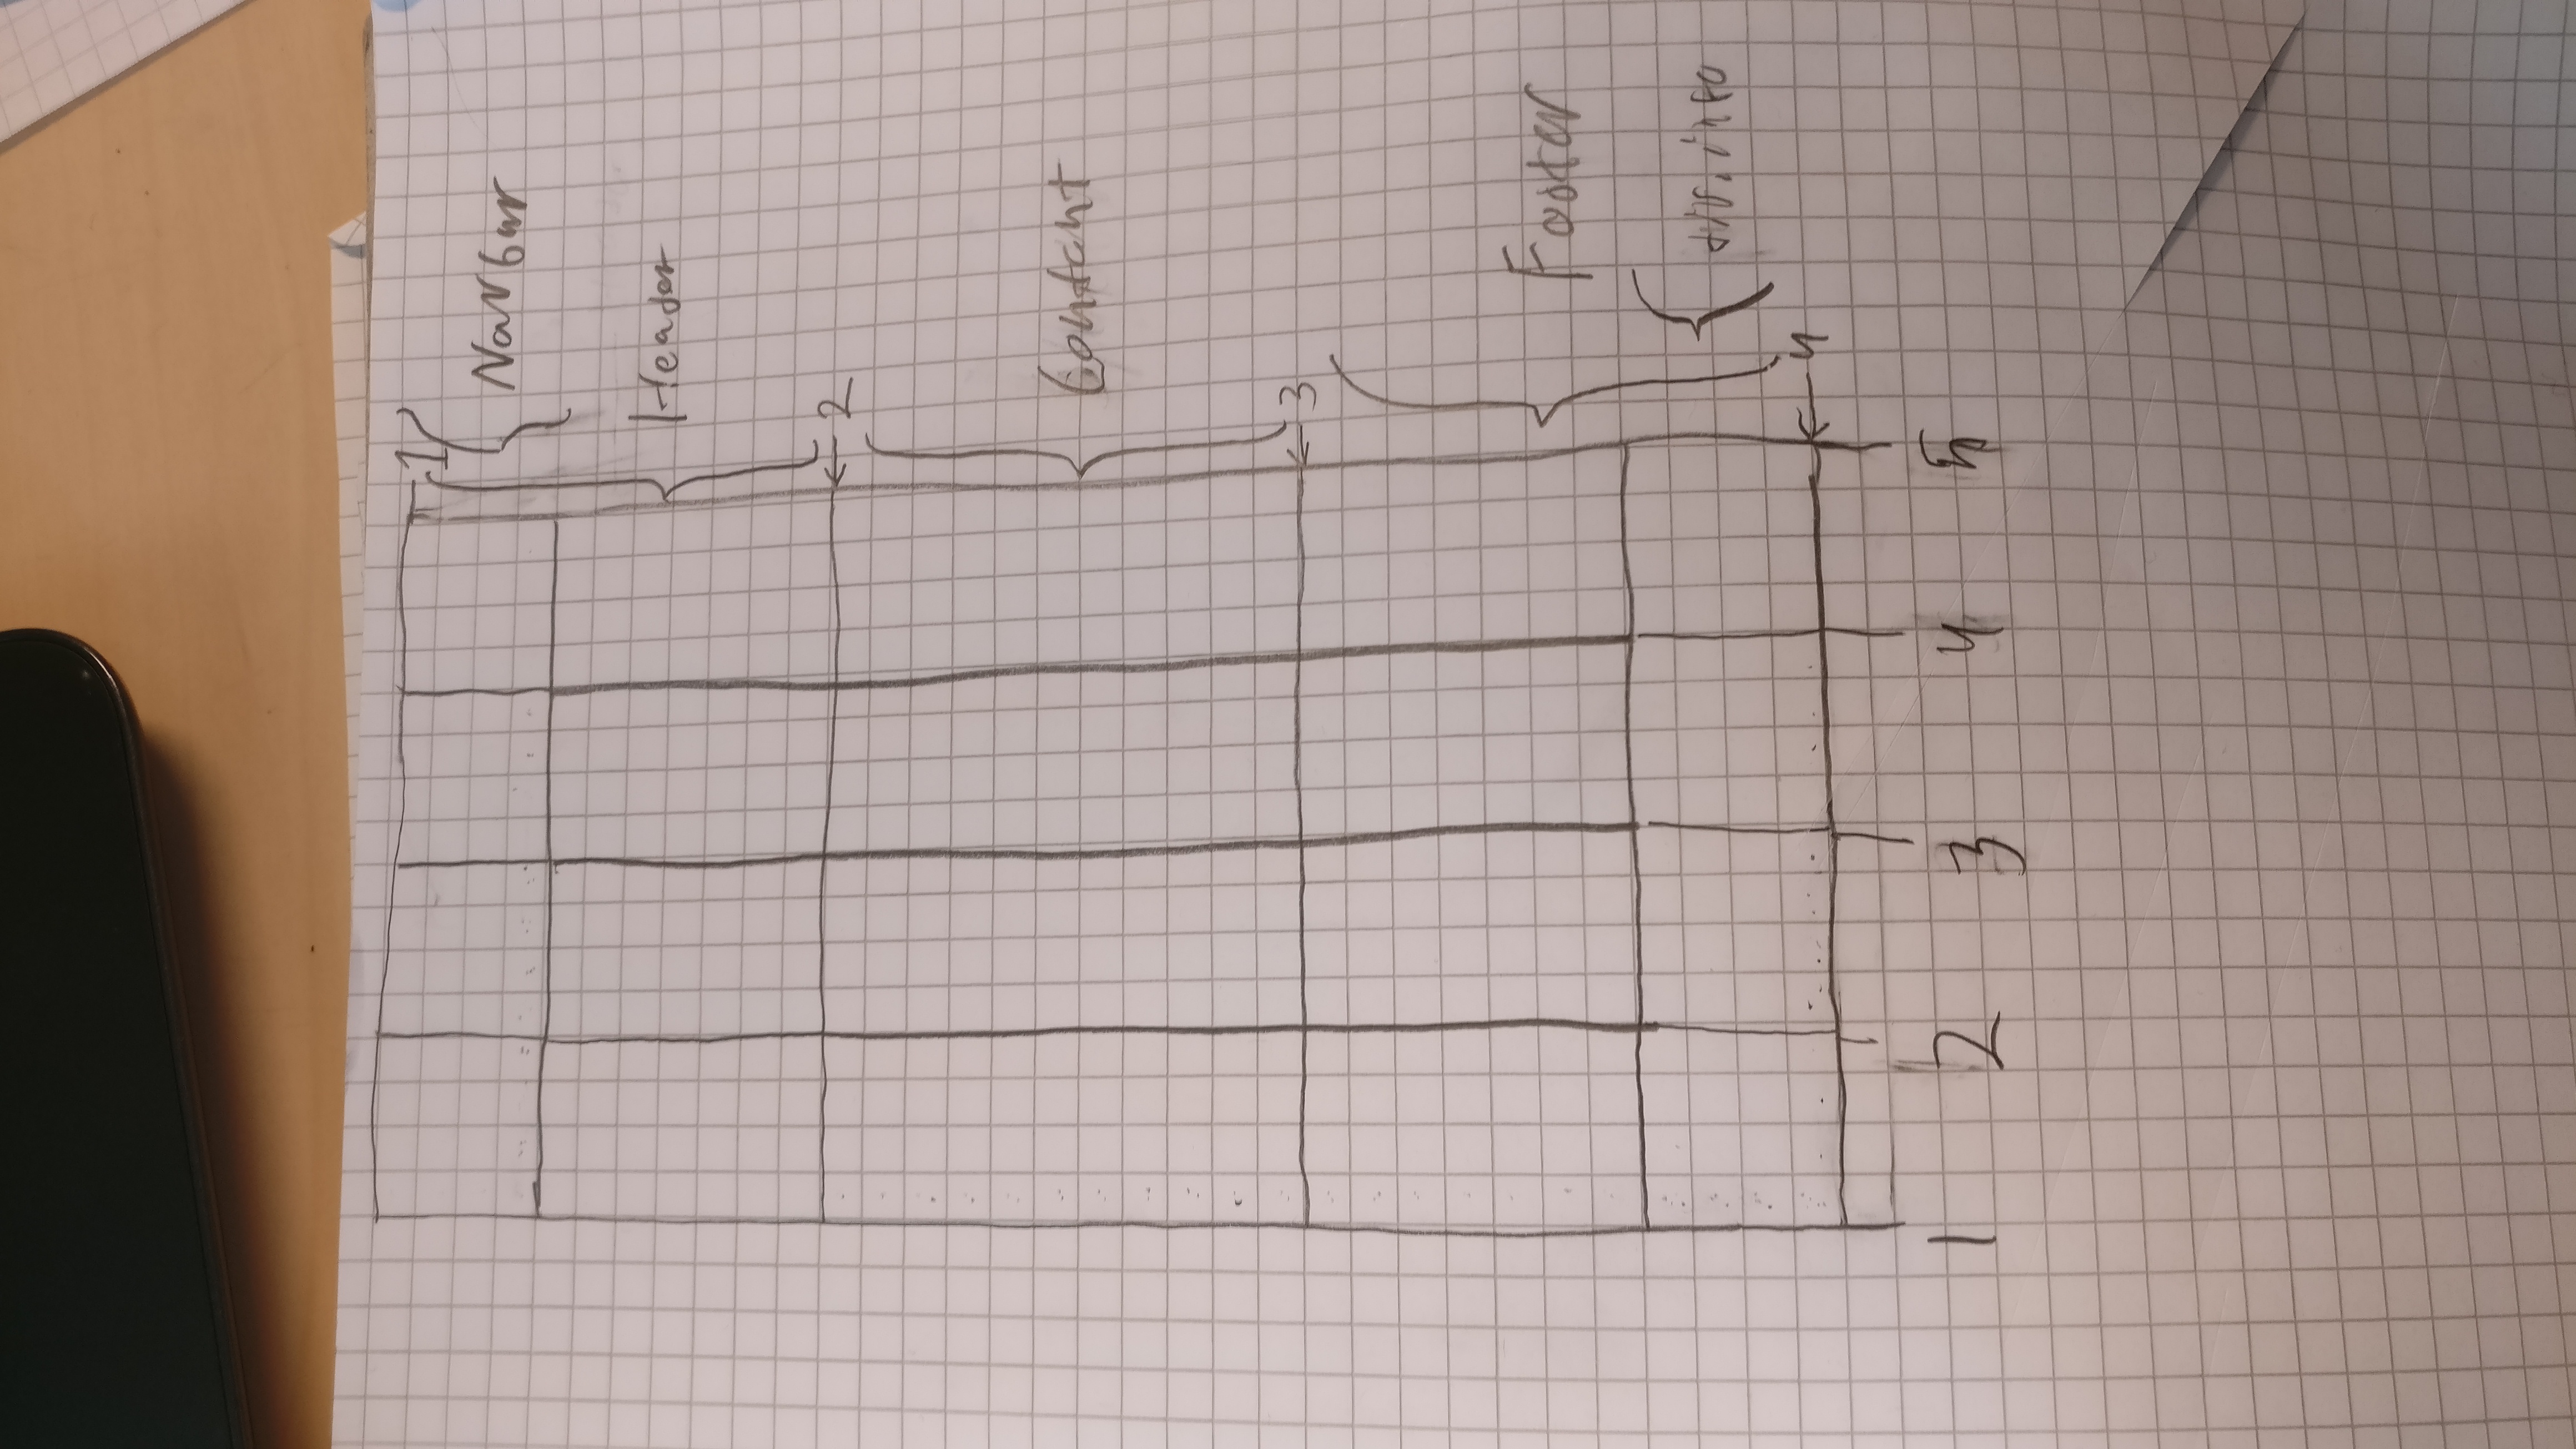 1
Navbar
Header
2
Content
3
Footer
div.info
4
1 2 3 4 5